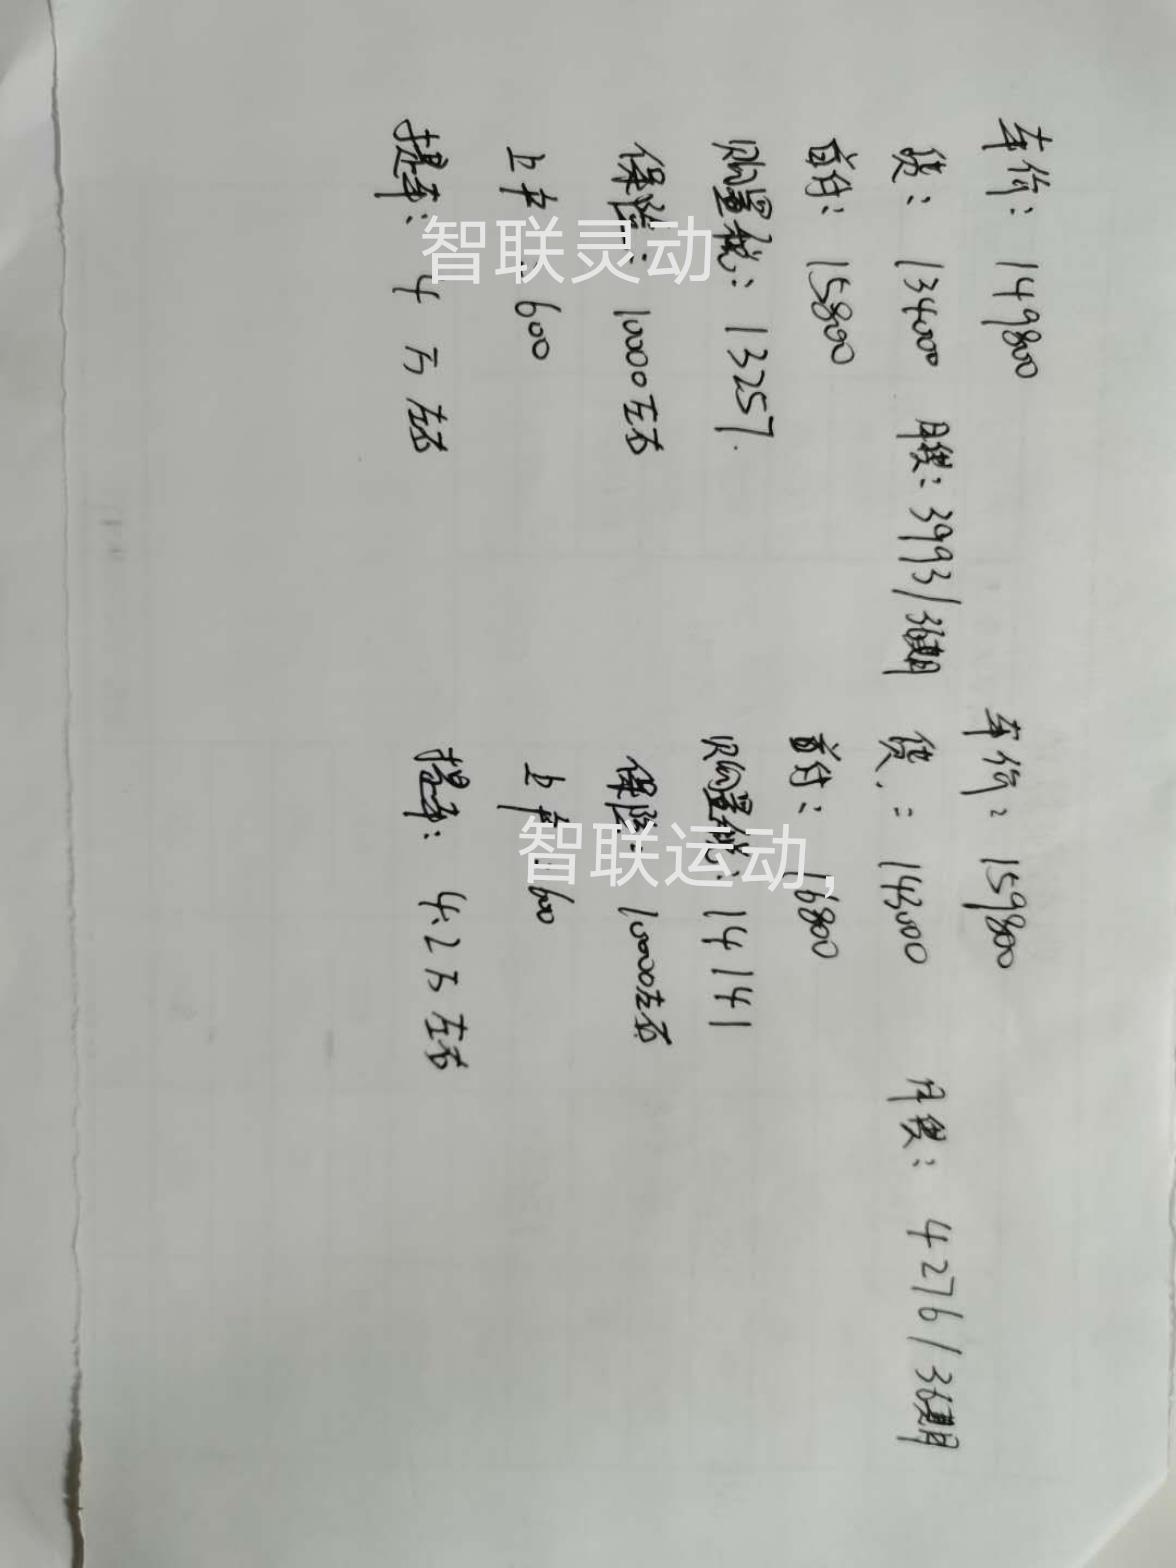 车价：149800
贷：134000 月供：3993/36期
首付：15800
购置税：13257.
保险：10000左右
上户：600
提车：4万左右
智联灵动
车价：159800
贷：143000 月供：4276/36期
首付：16800
购置税：14141
保险：10000左右
上户：600
提车：4.2万左右
智联运动，